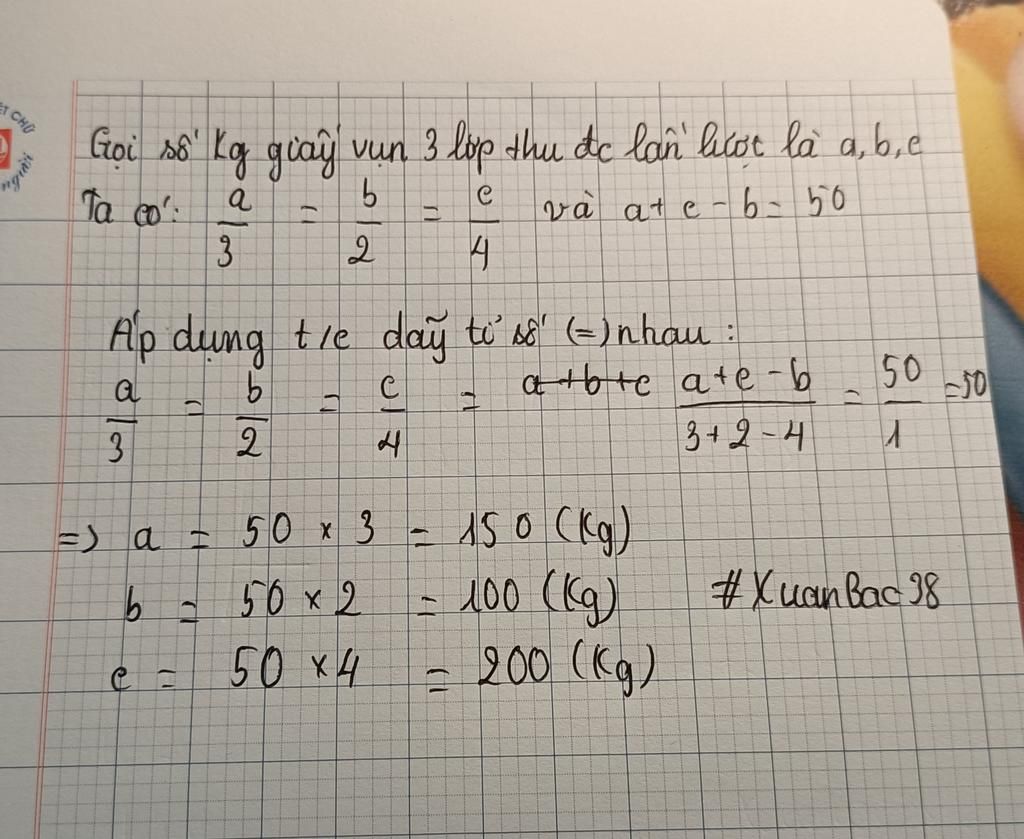 Gọi số Kg giấy vụn 3 lớp thu đc lần lượt là a, b, c
Ta có: a/3 = b/2 = c/4 và a + c - b = 50
Áp dụng t/c dãy tỉ số (=) nhau:
a/3 = b/2 = c/4 = a+b+c (a+c-b)/(3+2-4) = 50/1 = 50
=> a = 50 x 3 = 150 (Kg)
b = 50 x 2 = 100 (Kg) #XuanBac98
c = 50 x 4 = 200 (Kg)